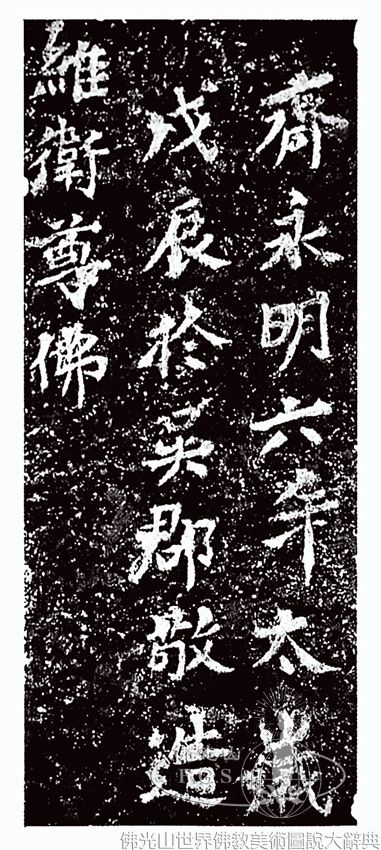 齊永明六年太歲
戊辰於吳郡敬造
維衛尊佛
佛光山世界佛教美術圖說大辭典